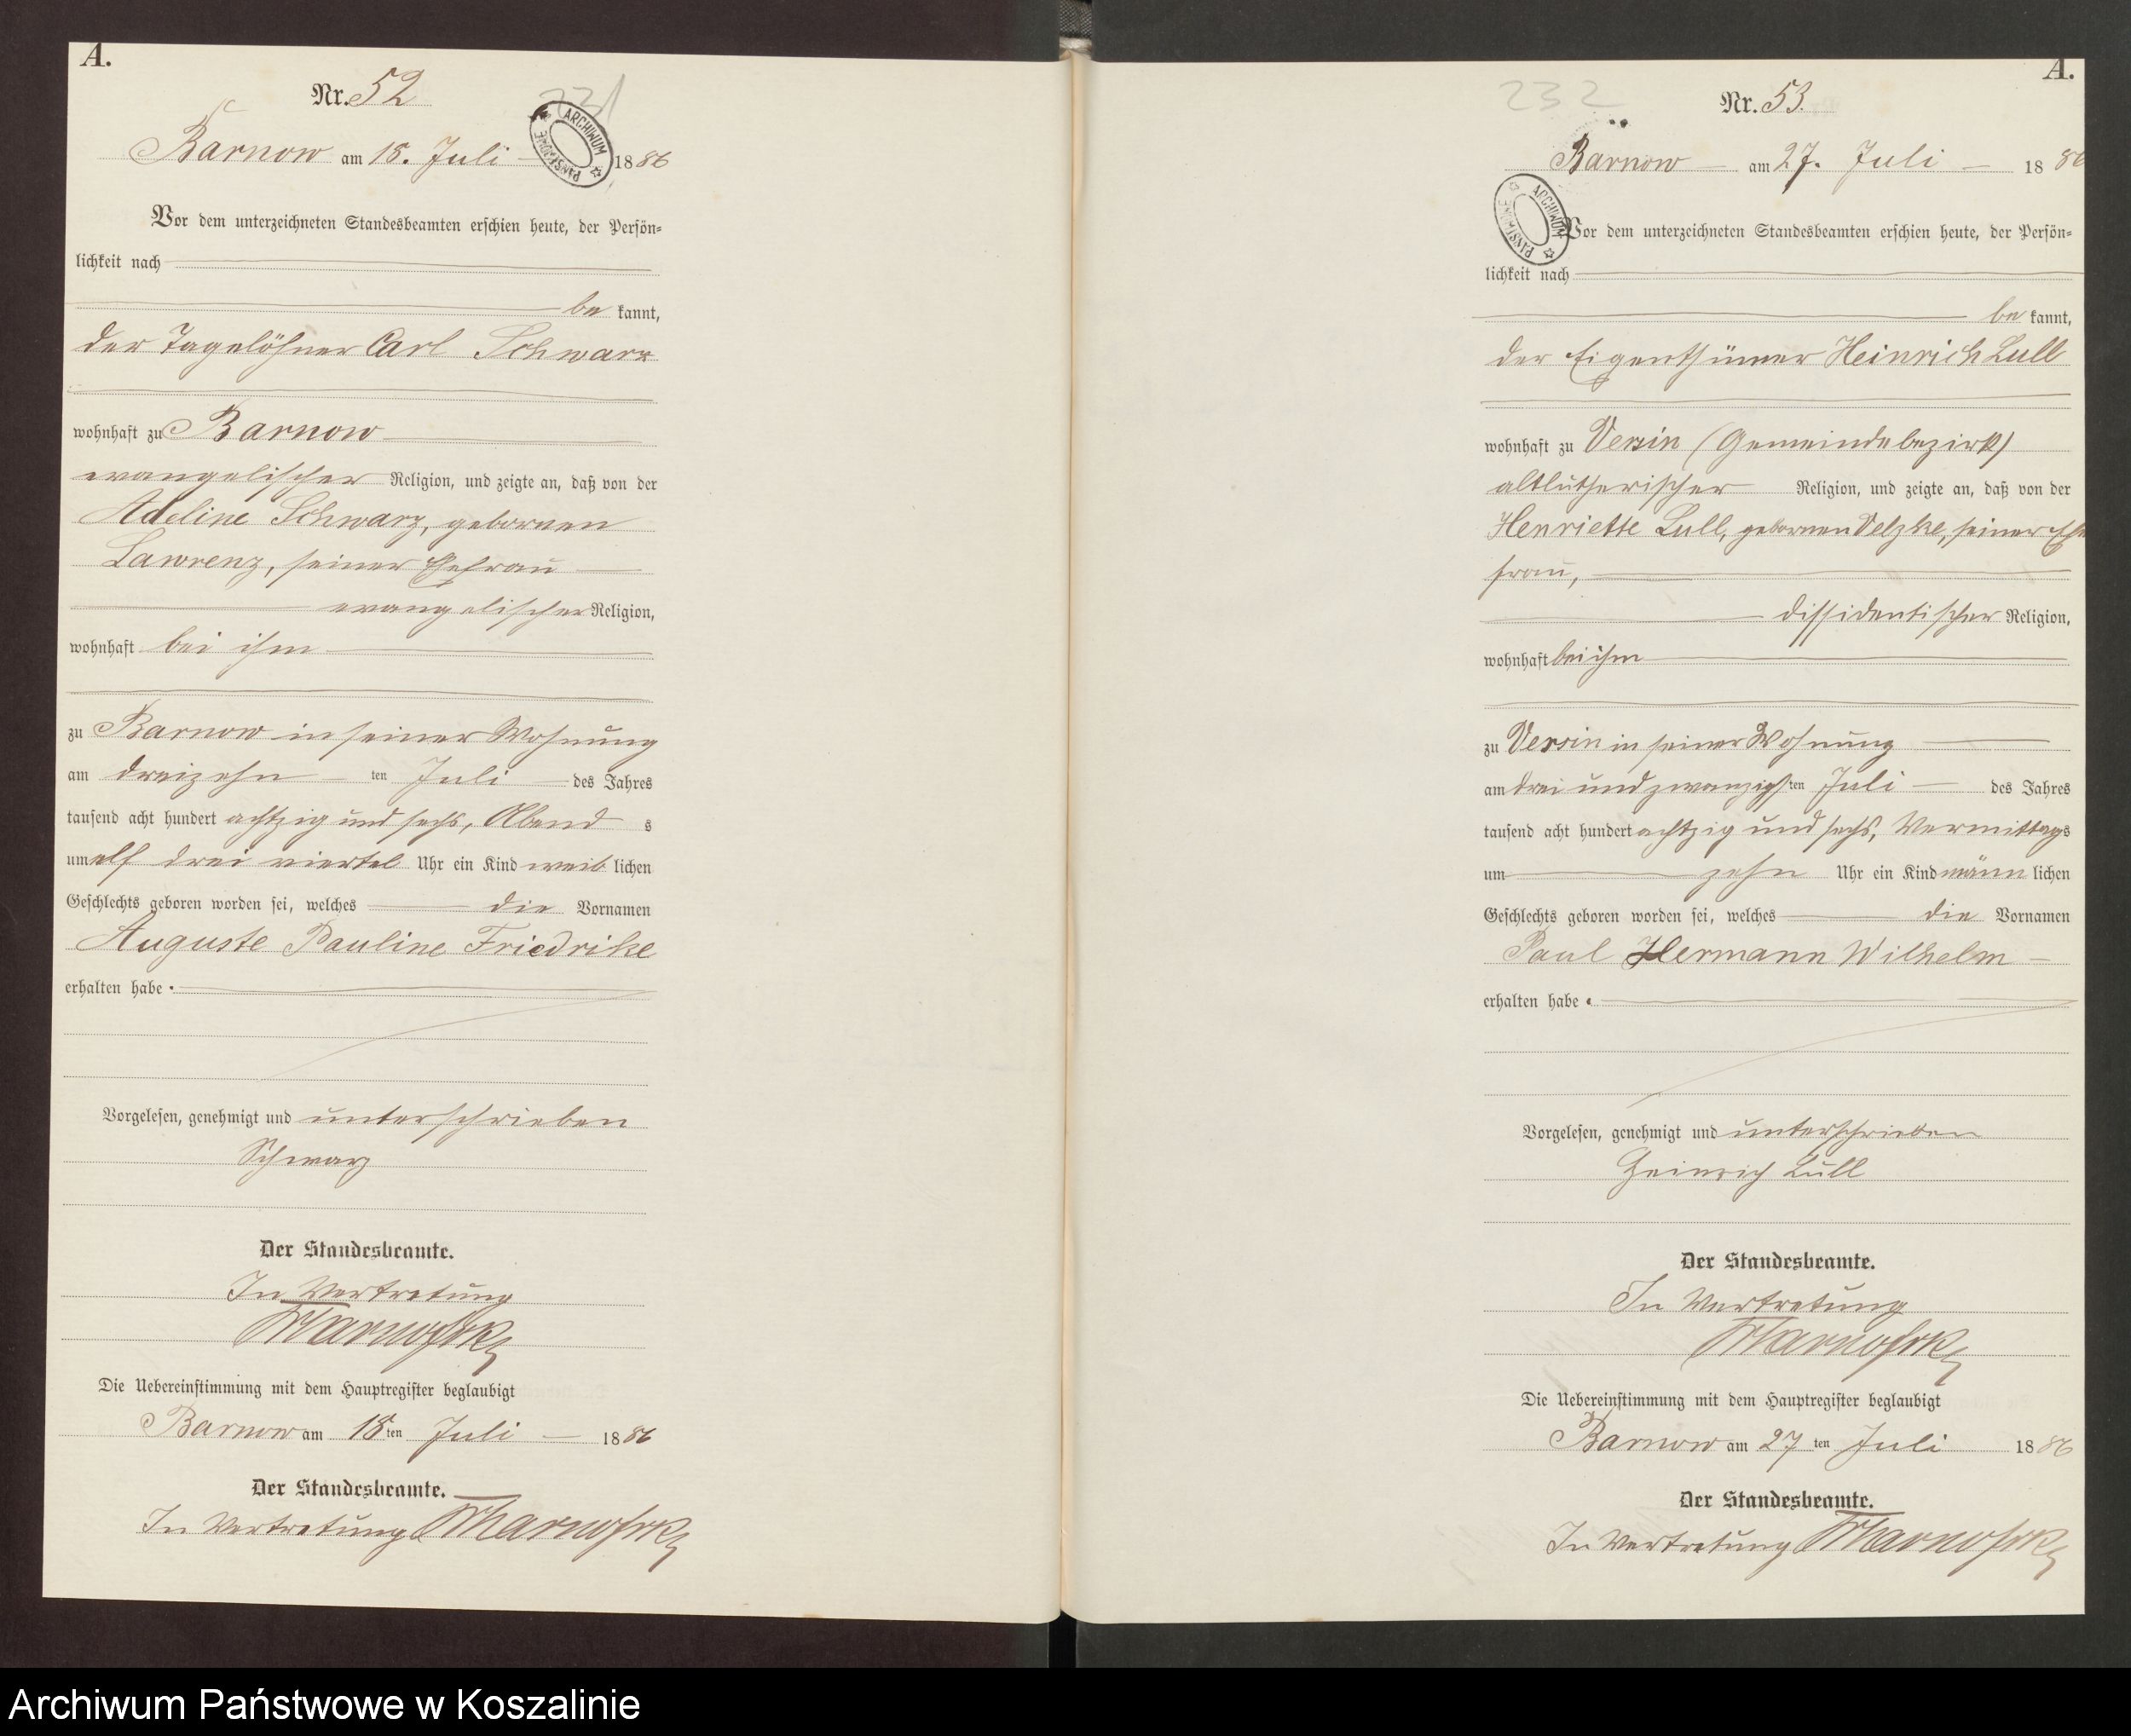 A.
Nr. 52
231
ARCHIWUM PAŃSTWOWE
Barnow am 18. Juli 1886
Vor dem unterzeichneten Standesbeamten erschien heute, der Persön-
lichkeit nach
be kannt,
der Tagelöhner Carl Schwarz
wohnhaft zu Barnow
evangelischer Religion, und zeigte an, daß von der
Adeline Schwarz, gebornen
Lawrenz, seiner Ehefrau
evangelischer Religion,
wohnhaft bei ihm
zu Barnow in seiner Wohnung
am dreizehn ten Juli des Jahres
tausend acht hundert achtzig und sechs, Abend s
um elf drei viertel Uhr ein Kind weib lichen
Geschlechts geboren worden sei, welches die Vornamen
Auguste Pauline Friedrike
erhalten habe.
Vorgelesen, genehmigt und unterschrieben
Schwarz
Der Standesbeamte.
In Vertretung
Die Uebereinstimmung mit dem Hauptregister beglaubigt
Barnow am 18 ten Juli 1886
Der Standesbeamte.
In Vertretung
A.
232
Nr. 53.
Barnow am 27. Juli 1886
ARCHIWUM PAŃSTWOWE
Vor dem unterzeichneten Standesbeamten erschien heute, der Persön-
lichkeit nach
be kannt,
der Eigenthümer Heinrich Lull
wohnhaft zu Versin (Gemeindebezirk)
altlutherischer Religion, und zeigte an, daß von der
Henriette Lull, gebornen Velzke, seiner Ehe
frau,
dissidentischer Religion,
wohnhaft bei ihm
zu Versin in seiner Wohnung
am drei und zwanzigsten Juli des Jahres
tausend acht hundert achtzig und sechs, Vormittags
um zehn Uhr ein Kind männ lichen
Geschlechts geboren worden sei, welches die Vornamen
Paul Hermann Wilhelm
erhalten habe.
Vorgelesen, genehmigt und unterschrieben
Heinrich Lull
Der Standesbeamte.
In Vertretung
Die Uebereinstimmung mit dem Hauptregister beglaubigt
Barnow am 27 ten Juli 1886
Der Standesbeamte.
In Vertretung
Archiwum Państwowe w Koszalinie